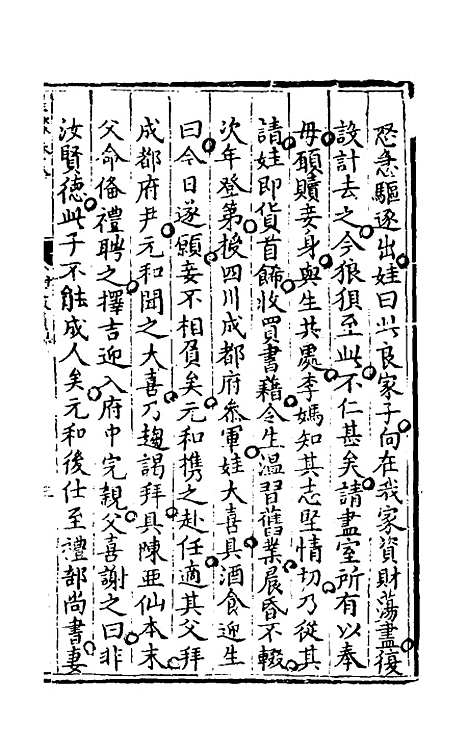 恐急驅逐出娃曰此良家子向在我家資財蕩盡復
設計去之今狼狽至此不仁甚矣請盡室所有以奉
母願贖妾身與生共處李媽知其志堅情切乃從其
請娃即貨首飾收買書籍令生溫習舊業晨昏不輟
次年登第授四川成都府叅軍娃大喜具酒食迎生
曰今日遂願妾不相負矣元和携之赴任適其父拜
成都府尹元和聞之大喜乃趨謁拜具陳亜仙本末
父命俻禮聘之擇吉迎入府中完親父喜謝之曰非
汝賢德此子不能成人矣元和後仕至禮部尚書妻